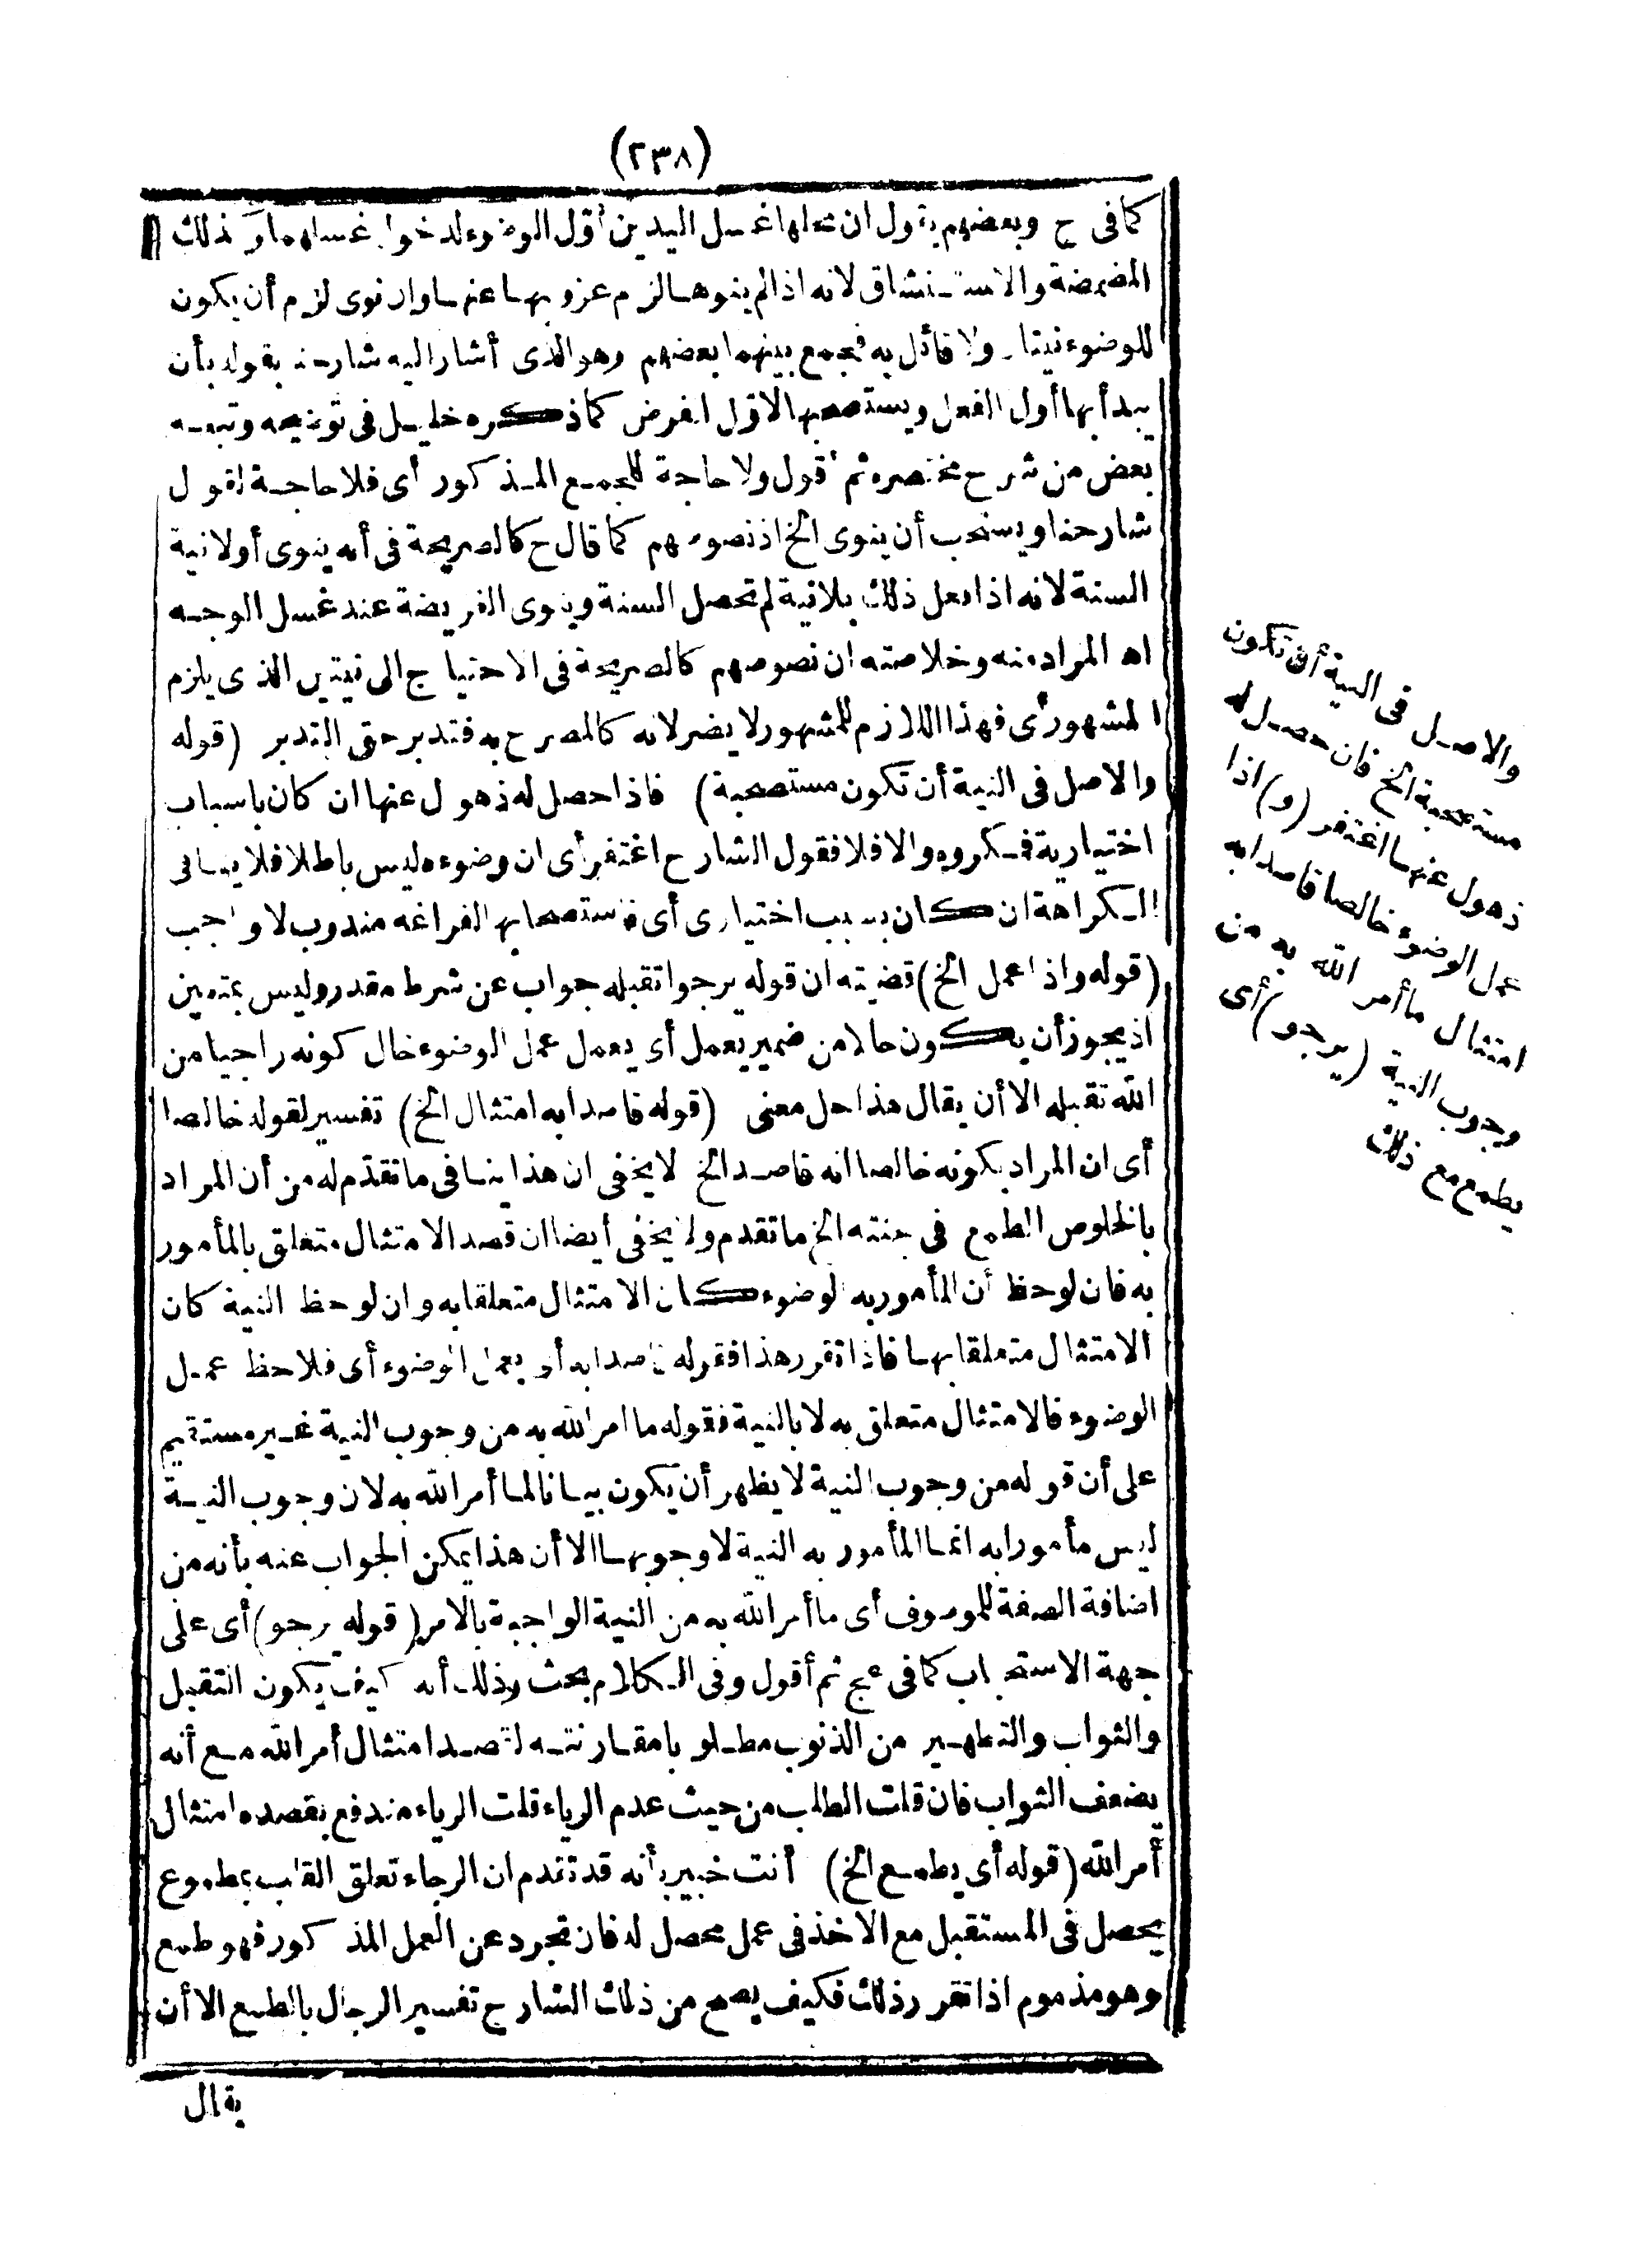 (٢٣٨)
كما فى ح وبعضهم يقول ان محلها غسل اليدين أول الوضوء لدخول غسلهما وكذلك
المضمضة والاستنشاق لانه اذا لم ينوها لزم عزوبها عنها وان نوى لزم أن يكون
للوضوء نيتان ولا قائل به فجمع بينهما بعضهم وهو الذى أشار اليه شارحنا بقوله بأن
يبدأ بها أول الفعل ويستصحبها لاول الفرض كما ذكره خليل فى توضيحه وتبعه
بعض من شرح مختصره ثم أقول ولا حاجة للجمع المذكور أى فلا حاجة لقول
شارحنا ويستحب أن ينوى الخ اذ نصوصهم كما قال ح كالصريحة فى أنه ينوى أولا نية
السنة لانه اذا فعل ذلك بلا نية لم تحصل السنة وينوى الفريضة عند غسل الوجه
اه المراد منه وخلاصته ان نصوصهم كالصريحة فى الاحتياج الى نيتين الذى يلزم
المشهور أى فهذا اللازم للمشهور لا يضر لانه كالمصرح به فتدبر حق التدبر (قوله
والاصل فى النية أن تكون مستصحبة) فاذا حصل له ذهول عنها ان كان باسباب
اختيارية فمكروه والا فلا فقول الشارح اغتفر أى ان وضوءه ليس باطلا فلا ينافى
الكراهة ان كان بسبب اختيارى أى فاستصحابها لفراغه مندوب لا واجب
(قوله واذا عمل الخ) قضيته ان قوله يرجو تقبله جواب عن شرط مقدر وليس بمتعين
اذ يجوز أن يكون حالا من ضمير يعمل أى يعمل عمل الوضوء حال كونه راجيا من
الله تقبله الا أن يقال هذا حل معنى (قوله قاصدا به امتثال الخ) تفسير لقوله خالصا
أى ان المراد بكونه خالصا انه قاصد الخ لا يخفى ان هذا ينافى ما تقدم له من أن المراد
بالخلوص الطمع فى جنته الخ ما تقدم ولا يخفى أيضا ان قصد الامتثال متعلق بالمأمور
به فان لوحظ أن المأمور به الوضوء كان الامتثال متعلقا به وان لوحظ النية كان
الامتثال متعلقا بها فاذا تقرر هذا فقوله قاصدا به أى بعمل الوضوء أى فلاحظ عمل
الوضوء فالامتثال متعلق به لا بالنية فقوله ما امر الله به من وجوب النية غير مستقيم
على أن قوله من وجوب النية لا يظهر أن يكون بيانا لما أمر الله به لان وجوب النية
ليس مأمورا به انما المأمور به النية لا وجوبها الا أن هذا يمكن الجواب عنه بأنه من
اضافة الصفة للموصوف أى ما أمر الله به من النية الواجبة بالامر (قوله يرجو) أى على
جهة الاستحباب كما فى عج ثم أقول وفى الكلام بحث وذلك أنه كيف يكون التقبل
والثواب والتطهير من الذنوب مطلوبا مقارنته لقصد امتثال أمر الله مع أنه
يضعف الثواب فان قلت الطلب من حيث عدم الرياء قلت الرياء مندفع بقصده امتثال
أمر الله (قوله أى يطمع الخ) أنت خبير بأنه قد تقدم ان الرجاء تعلق القلب بمطموع
يحصل فى المستقبل مع الاخذ فى عمل محصل له فان تجرد عن العمل المذكور فهو طمع
وهو مذموم اذا تقرر ذلك فكيف يصح من ذلك الشارح تفسير الرجال بالطمع الا أن
يقال
والاصل فى النية أن تكون
مستصحبة الخ فان حصل له
ذهول عنها اغتفر (و) اذا
عمل الوضوء خالصا قاصدا به
امتثال ما أمر الله به من
وجوب النية (يرجو) أى
يطمع مع ذلك